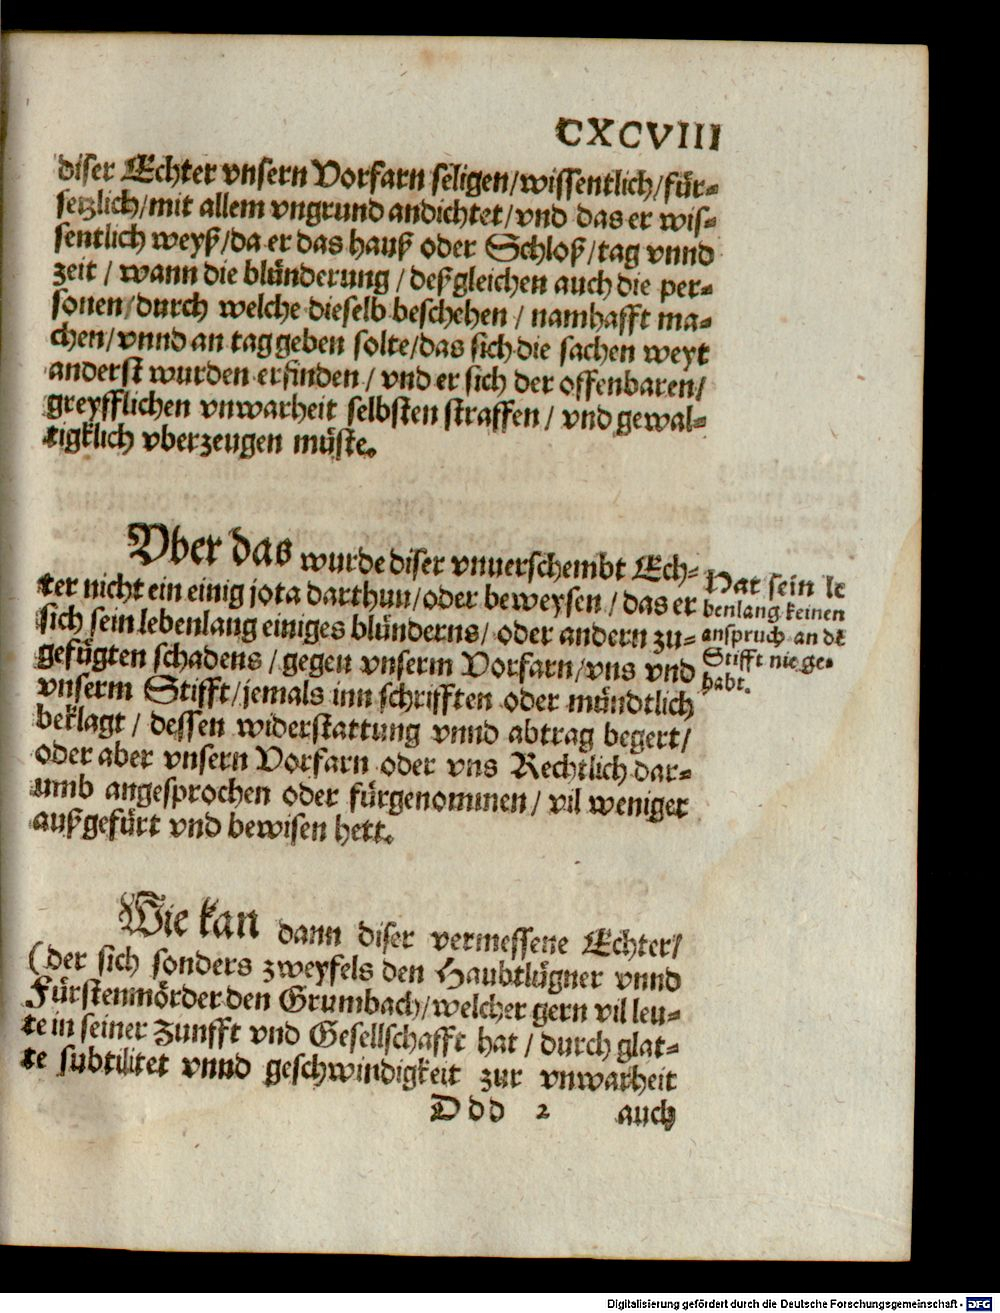 CXCVIII
diser Echter vnsern Vorfarn seligen/wissentlich/für-
setzlich/mit allem vngrund andichtet/vnd das er wis-
sentlich weyß/da er das hauß oder Schloß/tag vnnd
zeit / wann die blünderung / deßgleichen auch die per-
sonen/durch welche dieselb beschehen / namhafft ma-
chen/vnnd an tag geben solte/das sich die sachen weyt
anderst wurden erfinden / vnd er sich der offenbaren/
greyfflichen vnwarheit selbsten straffen / vnd gewal-
tigklich vberzeugen müste.
Vber das wurde diser vnuerschembt Ech-
ter nicht ein einig jota darthun/oder beweysen / das er
sich sein lebenlang einiges blünderns/ oder andern zu-
gefügten schadens / gegen vnserm Vorfarn/vns vnd
vnserm Stifft/jemals inn schrifften oder mündtlich
beklagt / dessen widerstattung vnnd abtrag begert/
oder aber vnsern Vorfarn oder vns Rechtlich dar-
umb angesprochen oder fürgenommen / vil weniger
außgefürt vnd bewisen hett.
Hat sein le
benlang keinen
anspruch an dē
Stifft nie ge-
habt.
Wie kan dann diser vermessene Echter/
(der sich sonders zweyfels den Haubtlügner vnnd
Fürstenmörder den Grumbach/welcher gern vil leu-
te in seiner Zunfft vnd Gesellschafft hat / durch glat-
te subtilitet vnnd geschwindigkeit zur vnwarheit
Ddd 2 auch
Digitalisierung gefördert durch die Deutsche Forschungsgemeinschaft - DFG